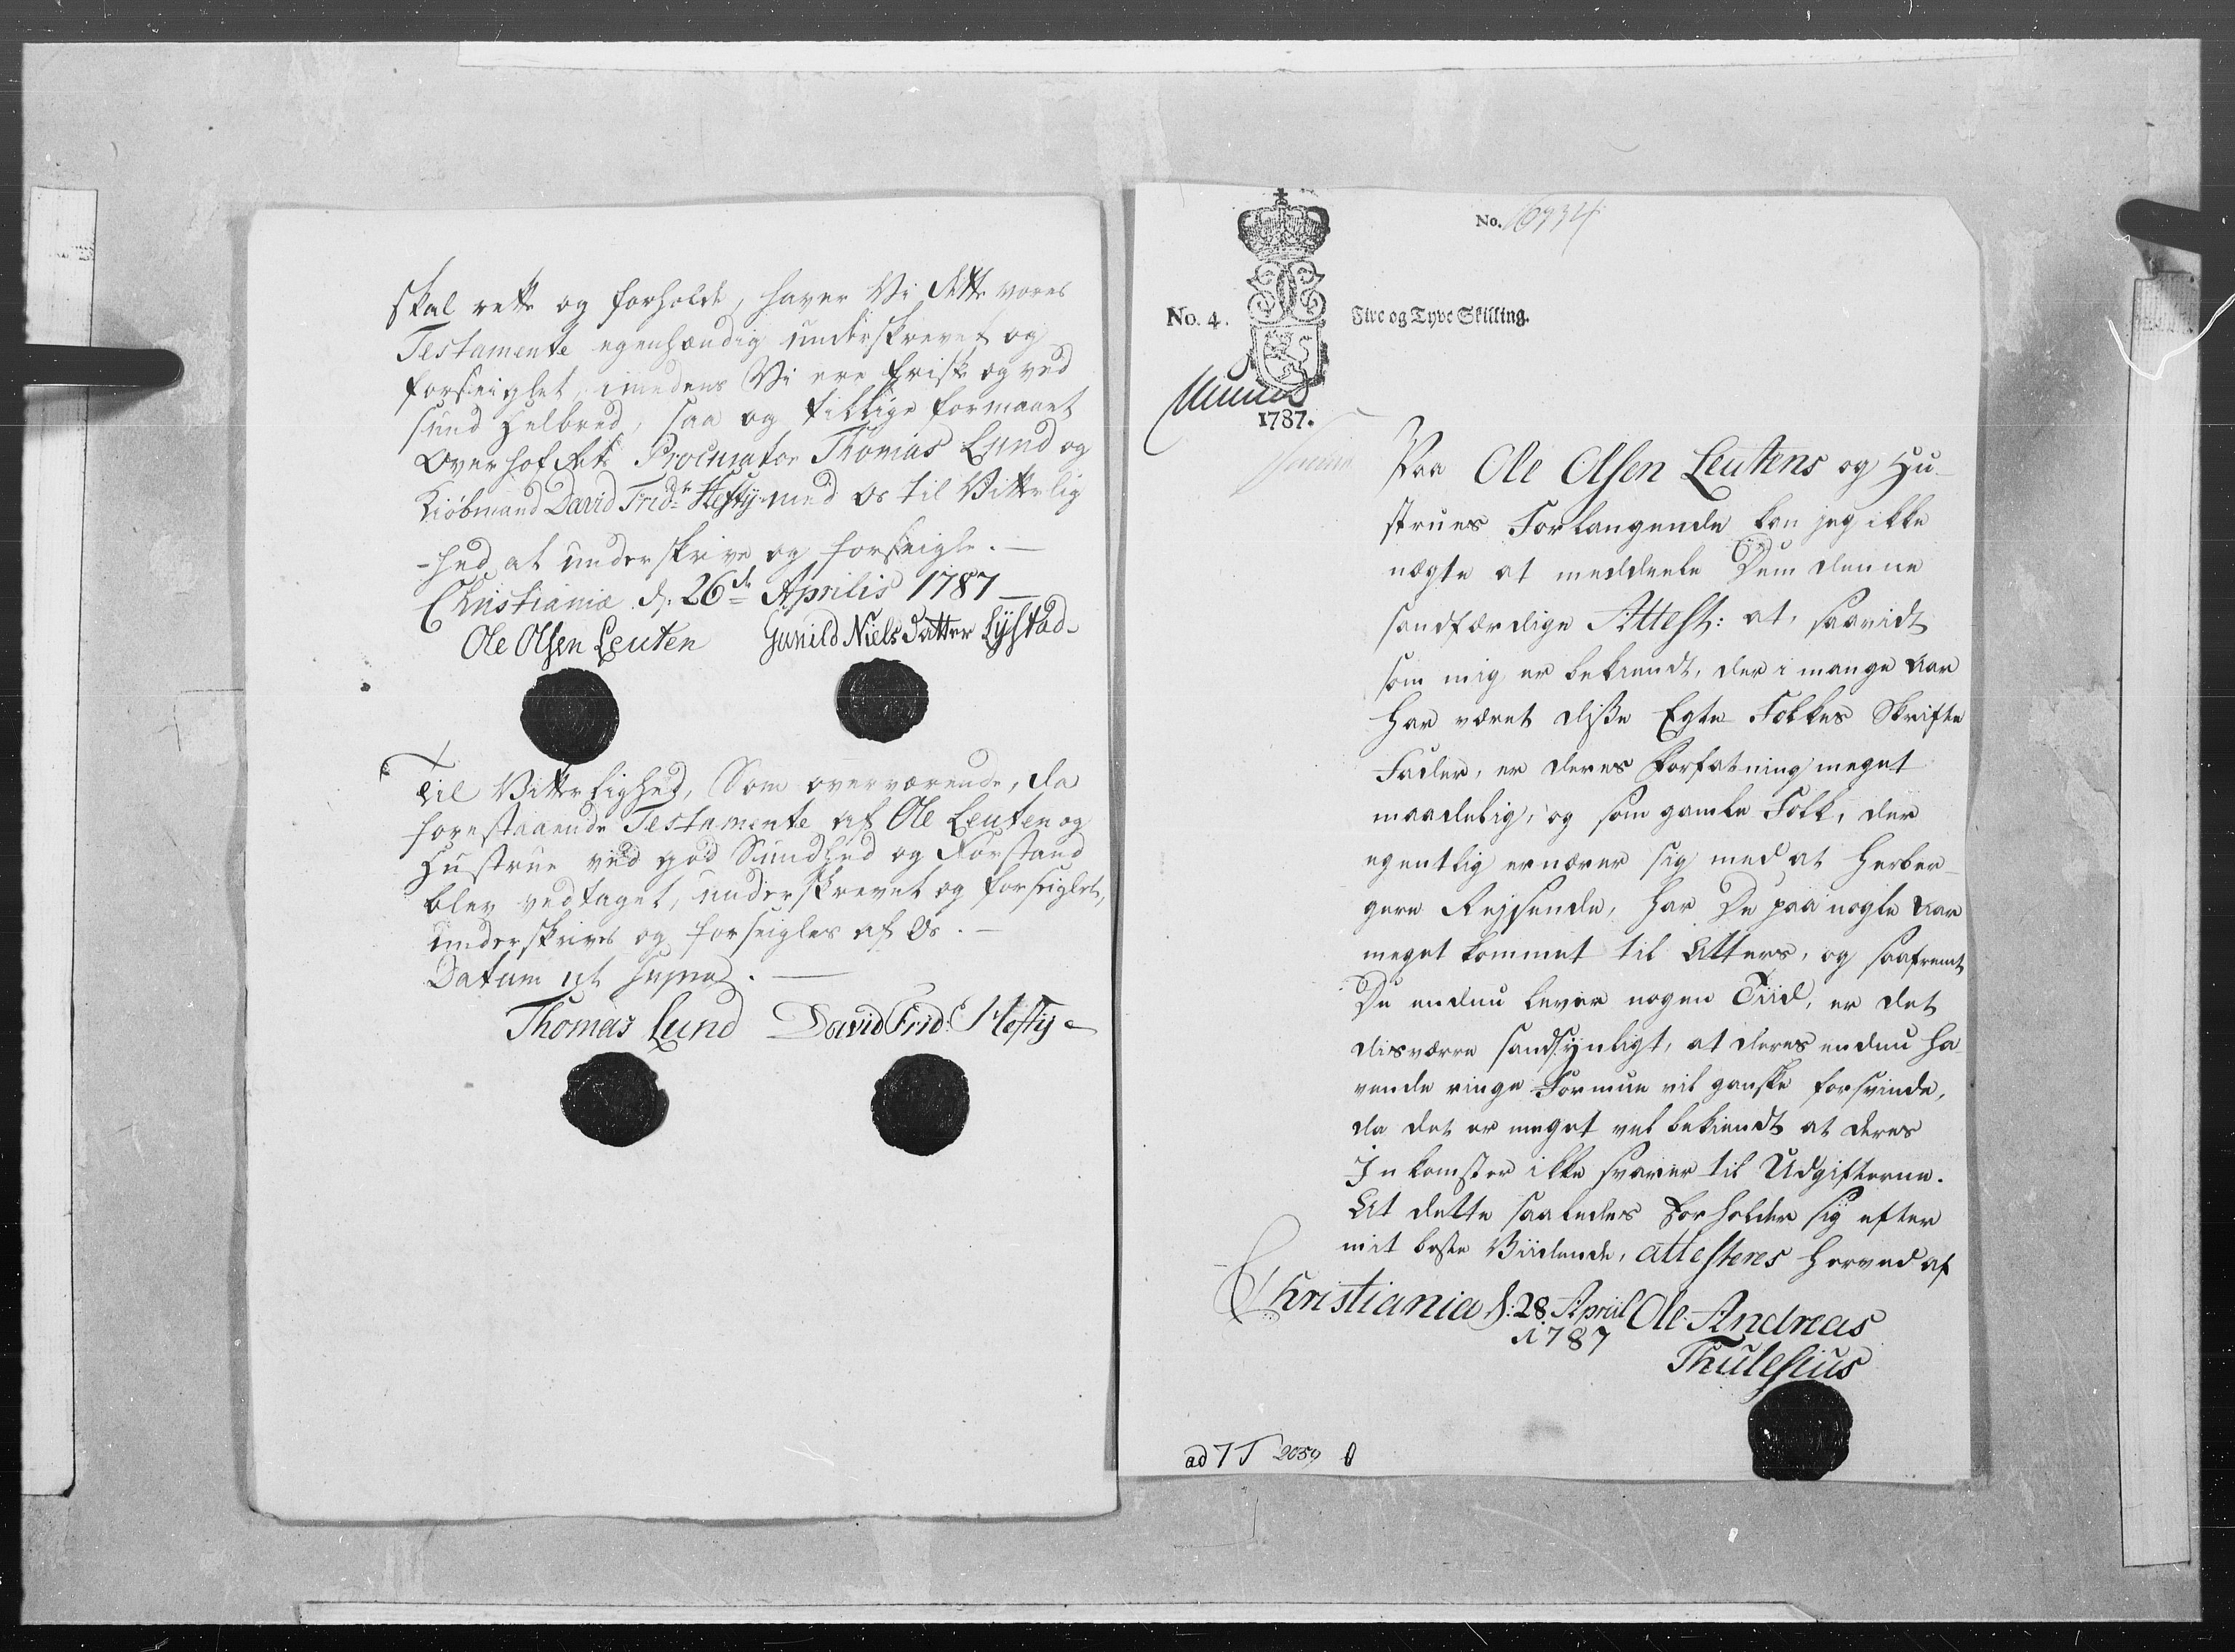 skal rette og forholde, haver Vi dette vores
Testamente egenhændig underskrevet og
forseiglet, imedens Vi ere friske og ved
sund Helbred, saa og tillige formaaet
Overhof Rets Procurator Thomas Lund og
Kiöbmand David Frid: Hefty med os til Vitterlig
-hed at underskrive og forseigle. —
Christiania d: 26de Aprilis 1787 —
Ole Olsen Leuten Gunild Niels Datter Lystad
Til Vitterlighed, Som overværende, da
forestaaende Testamente af Ole Leuten og
Hustrue ved god Sundhed og Forstand
blev vedtaget, underskrevet og forseiglet,
underskrives og forseigles af Os. —
Datum ut supra. —
Thomas Lund David Frid: Hefty
No. 16734
No. 4. Fire og Tyve Skilling.
1787.
Paa Ole Olsen Leutens og Hu-
strues Forlangende kan jeg ikke
nægte at meddeele Dem denne
sandfærdige Attest: at, saavidt
som mig er bekiendt, der i mange Aar
har været disse Egte Folkes Skrifte
Fader, er deres Forfatning meget
maadelig, og som gamle Folk, der
egentlig ernærer sig med at Herber-
gere Rejsende, har De paa nogle Aar
meget kommet til Atters, og saafremt
De endnu lever nogen Tiid, er det
disværre sandsynligt, at deres endnu ha-
vende ringe Formue vil ganske forsvinde,
da det er meget vel bekiendt at deres
Inkomster ikke svarer til Udgifterne.
At dette saaledes forholder sig efter
mit beste Viidende, attesteres herved af
Christiania d: 28 April Ole Andreas
1787
Thulesius
ad 7 T 2059